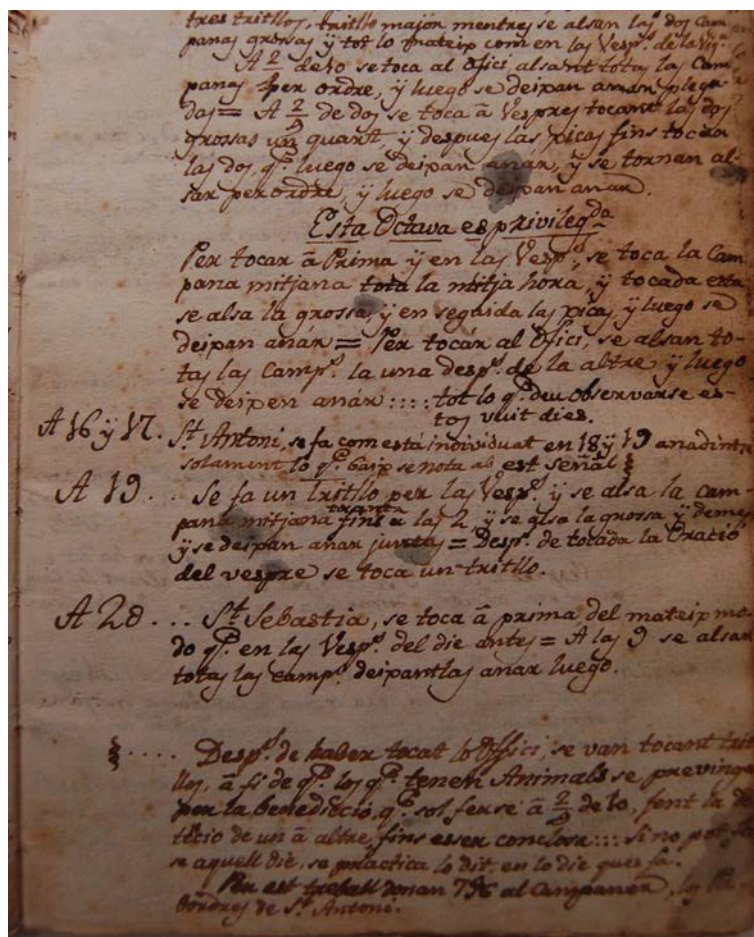 tres tritllos, tritllo major mentres se alsan las dos Cam
panas grossas ÿ tot lo mateix com en las Vesp.s de la Vig.a
A 2/3 de 10 se toca al Ofici alsant totas las Cam
panas per ordre, ÿ luego se deixan anar plega
das = A 2/3 de dos se toca â Vespres tocant las dos
grossas un quart, ÿ despues las xicas fins tocan
las dos, q.e luego se deixan anar, ÿ se tornan al-
sar per ordre, ÿ luego se deixan anar.
Esta Octava es privileg.da
Per tocar â Prima ÿ en las Vesp.s, se toca la Cam
pana mitjana tota la mitja hora, ÿ tocada esta
se alsa la grossa, ÿ en seguida las xicas, ÿ luego se
deixan anár = Per tocár al Ofici, se alsan to-
tas las Camp.s la una desp.s de la altre ÿ luego
se deixen anár :::: tot lo q.e deu observarse es-
tos vuit dies.
A 16 ÿ 17. S.t Antoni, se fa com está individuat en 18 ÿ 19 anadint
solament lo q.e baix se nota ab est señal §
A 19. . Se fa un tritllo per las Vesp.s ÿ se alsa la cam
pana mitjana fins a las 2, ÿ se alsa la grossa ÿ demes
ÿ se deixan anar juntas = Desp.s de tocada la Oratio
del vespre se toca un tritllo.
A 20 . . . S.t Sebastia, se toca â prima del mateix mo-
do q.e en las Vesp.s del die antes = A las 9 se alsan
totas las camp.s deixantlas anar luego.
§ . . . . Desp.s de haber tocat lo Offici, se van tocant trit
llos, â fi de q.e los q.e tenen Animals se previnga
per la benedicció, q.e sol ferse â 2/3 de 10, fent la
de un â altre, fins esser conclosa ::: Si no pot fer
se aquell die, se practica lo dit en lo die ques fa.
Per est treball donan al Campaner, los
de S.t Antoni.